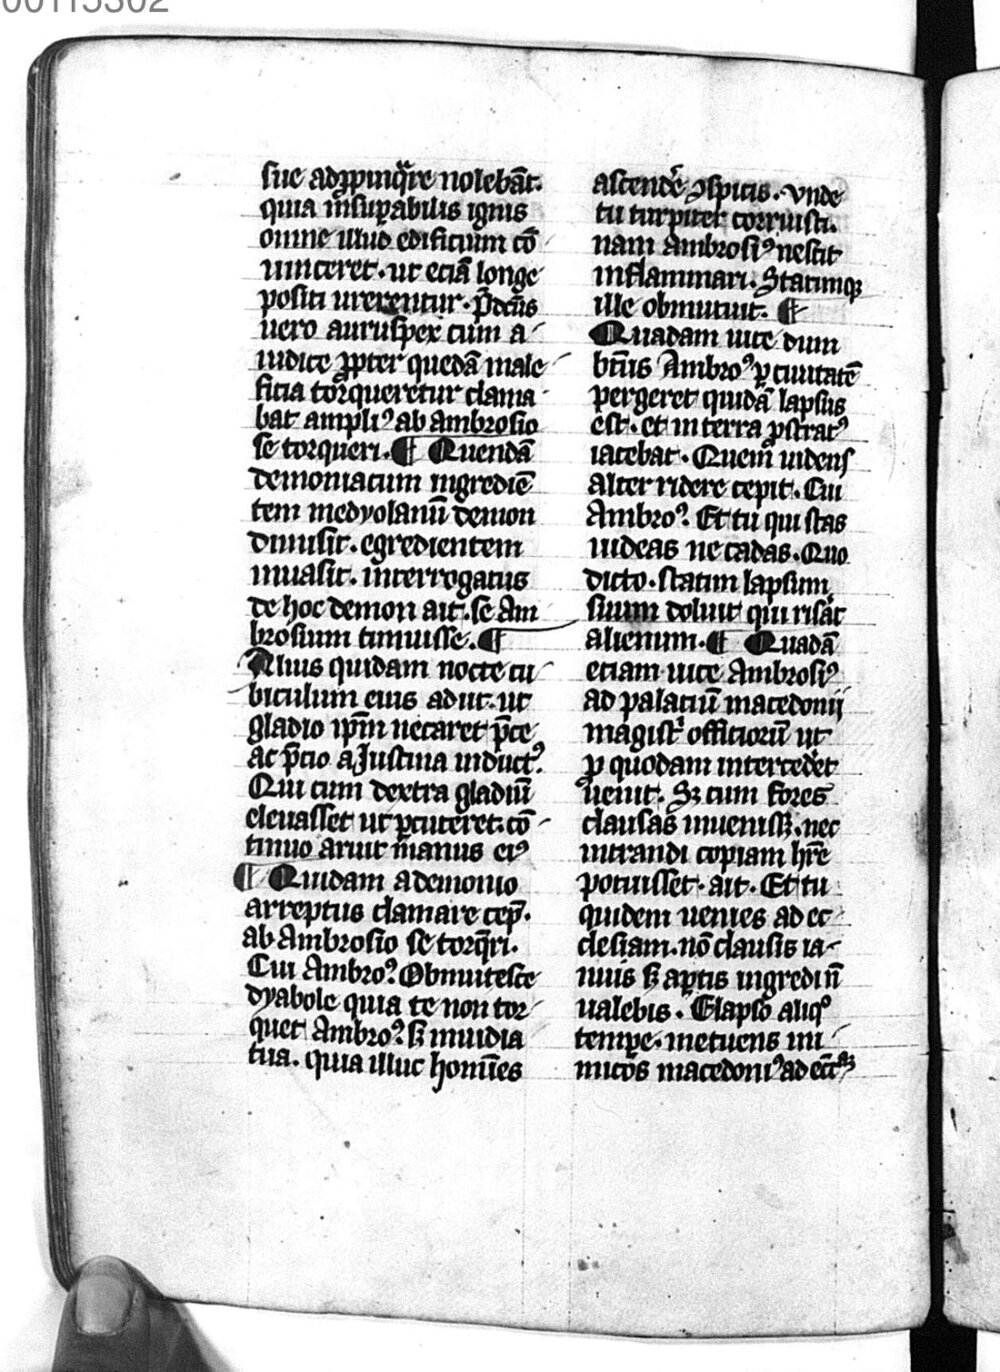 00115302
sue adp̱pinq̃re nolebãt.
quia insuꝑabilis ignis
omne illud edificium cõ
uinceret. ut eciã longe
positi urerentur. p̃dc̃us
uero auruspex cum a
iudice ꝓpter quedã male
ficia torqueretur clama
bat ampliꝰ ab ambrosio
se torqueri. ¶ Quendã
demoniacum ingrediẽ
tem medyolanũ demon
dimisit. egredientem
inuasit. interrogatus
de hoc demon ait. se Am
brosium timuisse. ¶
Alius quidam nocte cu
biculum eius adiit. ut
gladio ip̃m necaret p̃ce
ac p̃cio a Justina inductꝰ.
Qui cum dextra gladiũ
eleuasset ut ꝑcuteret. cõ
tinuo aruit manus eiꝰ
¶ Quidam a demonio
arreptus clamare cep̃.
ab Ambrosio se torq̃ri.
Cui Ambroꝰ. Obmutesce
dyabole quia te non tor
quet Ambroꝰ. sꝫ inuidia
tua. quia illuc homĩes
ascendẽ ꝯspicis. vnde
tu turpiter corruisti.
nam Ambrosiꝰ nescit
inflammari. Statimqꝫ
ille obmutuit. ¶
Quadam uice dum
bt̃us Ambroꝰ ꝑ ciuitatẽ
pergeret quidã lapsus
est. et in terra ꝓstratꝰ
iacebat. Quem uidens
alter ridere cepit. Cui
Ambroꝰ. Et tu qui stas
uideas ne cadas. Quo
dicto. statim lapsum
suum doluit qui risãt
alienum. ¶ Quadã
etiam uice Ambrosiꝰ
ad palaciũ macedonij
magistꝛ̃ officiorũ ut
ꝑ quodam intercedet
ueniit. Sꝫ cum fores
clausas inuenissꝫ. nec
intrandi copiam hr̃e
potuisset. ait. Et tu
quidem uenies ad ec
clesiam. nõ clausis ia
nuis sꝫ aꝑtis ingredi ñ
ualebis. Elapso aliqͦ
tempe. metuens ini
micos macedoniꝰ ad ecc̃aꝫ